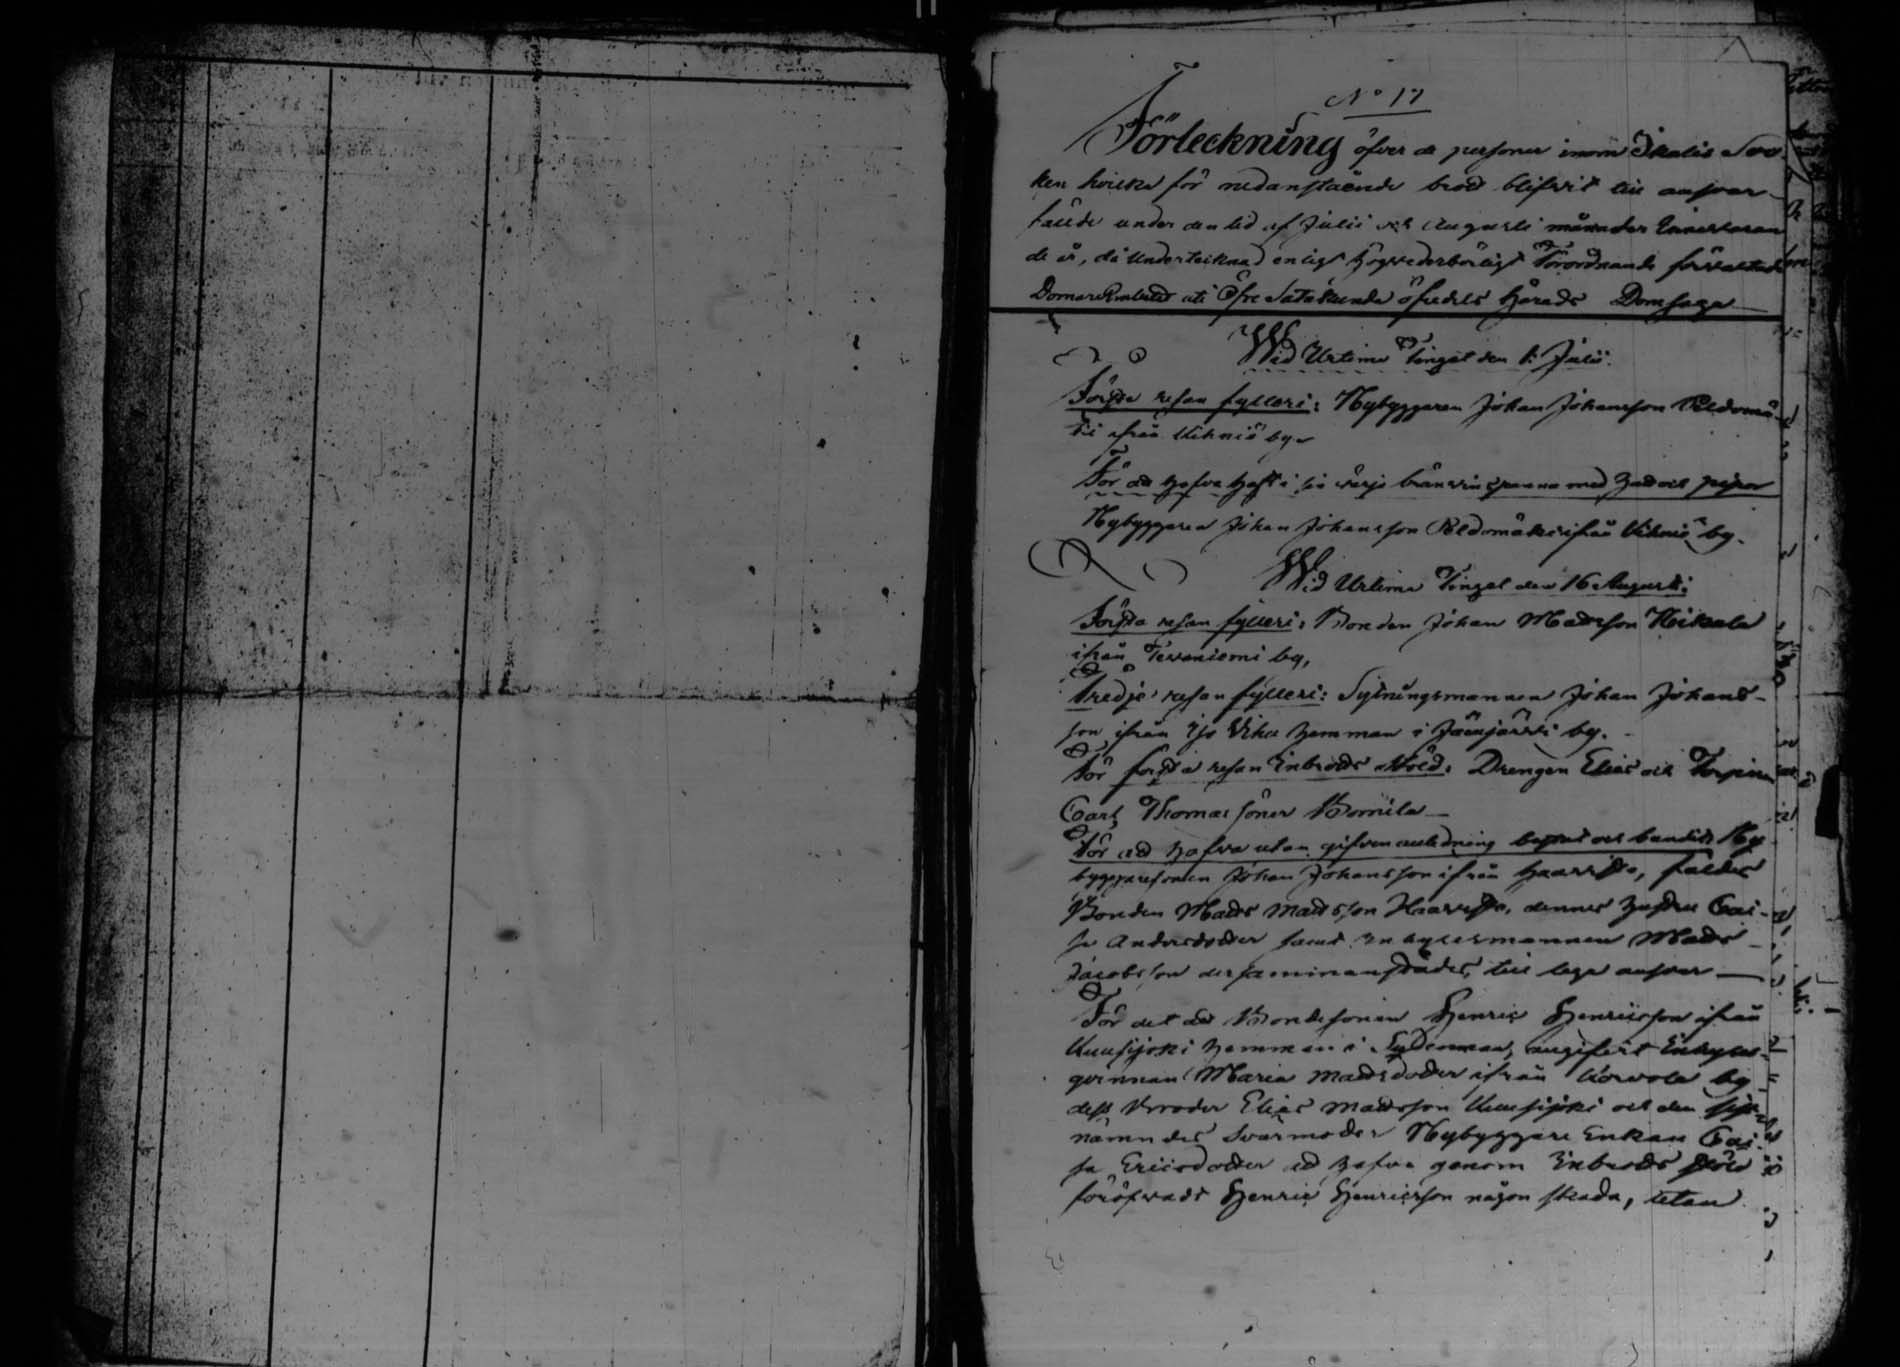 No 17
Förteckning öfver de personer inom Ikalis Soc-
ken hvilka för nedanstående brott blifvit till ansvar
fälde under den tid af Julii och Augusti månader innevaran
de år, då Undertecknad enligt högvederbörligt Förordnande förvaltade
Domare Embetet uti Öfre Satakunda öfredels Härads Domsaga
Wid Urtima Tinget den 1: Julii.
Första resan fylleri: Nybyggaren Johan Johansson Peldomä-
ki ifrån Kihniö by
För att hafva haft i sin värjo bränvinspanna med hatt och pipor
Nybyggaren Johan Johansson Peldomäki ifrån Kihniö by.
Wid Urtima Tinget den 16 Augusti:
Första resan fylleri: Bonden Johan Madsson Heikala
ifrån Tevaniemi by,
Tredje resan fylleri: Sytningsmannen Johan Johans-
son ifrån Iso Vihu hemman i Jämijärvi by.
För första resan Inbrotts stöld: Drengen Elias och Torparen
Carl Thomas söner Bomila
För att hafva utan gifven anledning bastat och bundit Ny
byggaresonen Johan Johansson ifrån Haavisto, fäldes
Bonden Mads Madsson Haavisto, dennes hustru Cai-
sa Andersdotter samt Inhysesmannen Mads
Jacobsson dersammanstädes, till laga ansvar
För det att Bondesonen Henric Henricsson ifrån
Kuusijoki hemman i angifvit Inhyses-
qvinnan Maria Madsdotter ifrån Kovola by
dess Broder Elias Madsson Kuusijoki och den sist
nämndes Svärmoder Nybyggare Enkan Cai-
sa Ericsdotter att hafva genom Inbrotts stöld
föröfvadt Henric Henricsson någon skada, utan